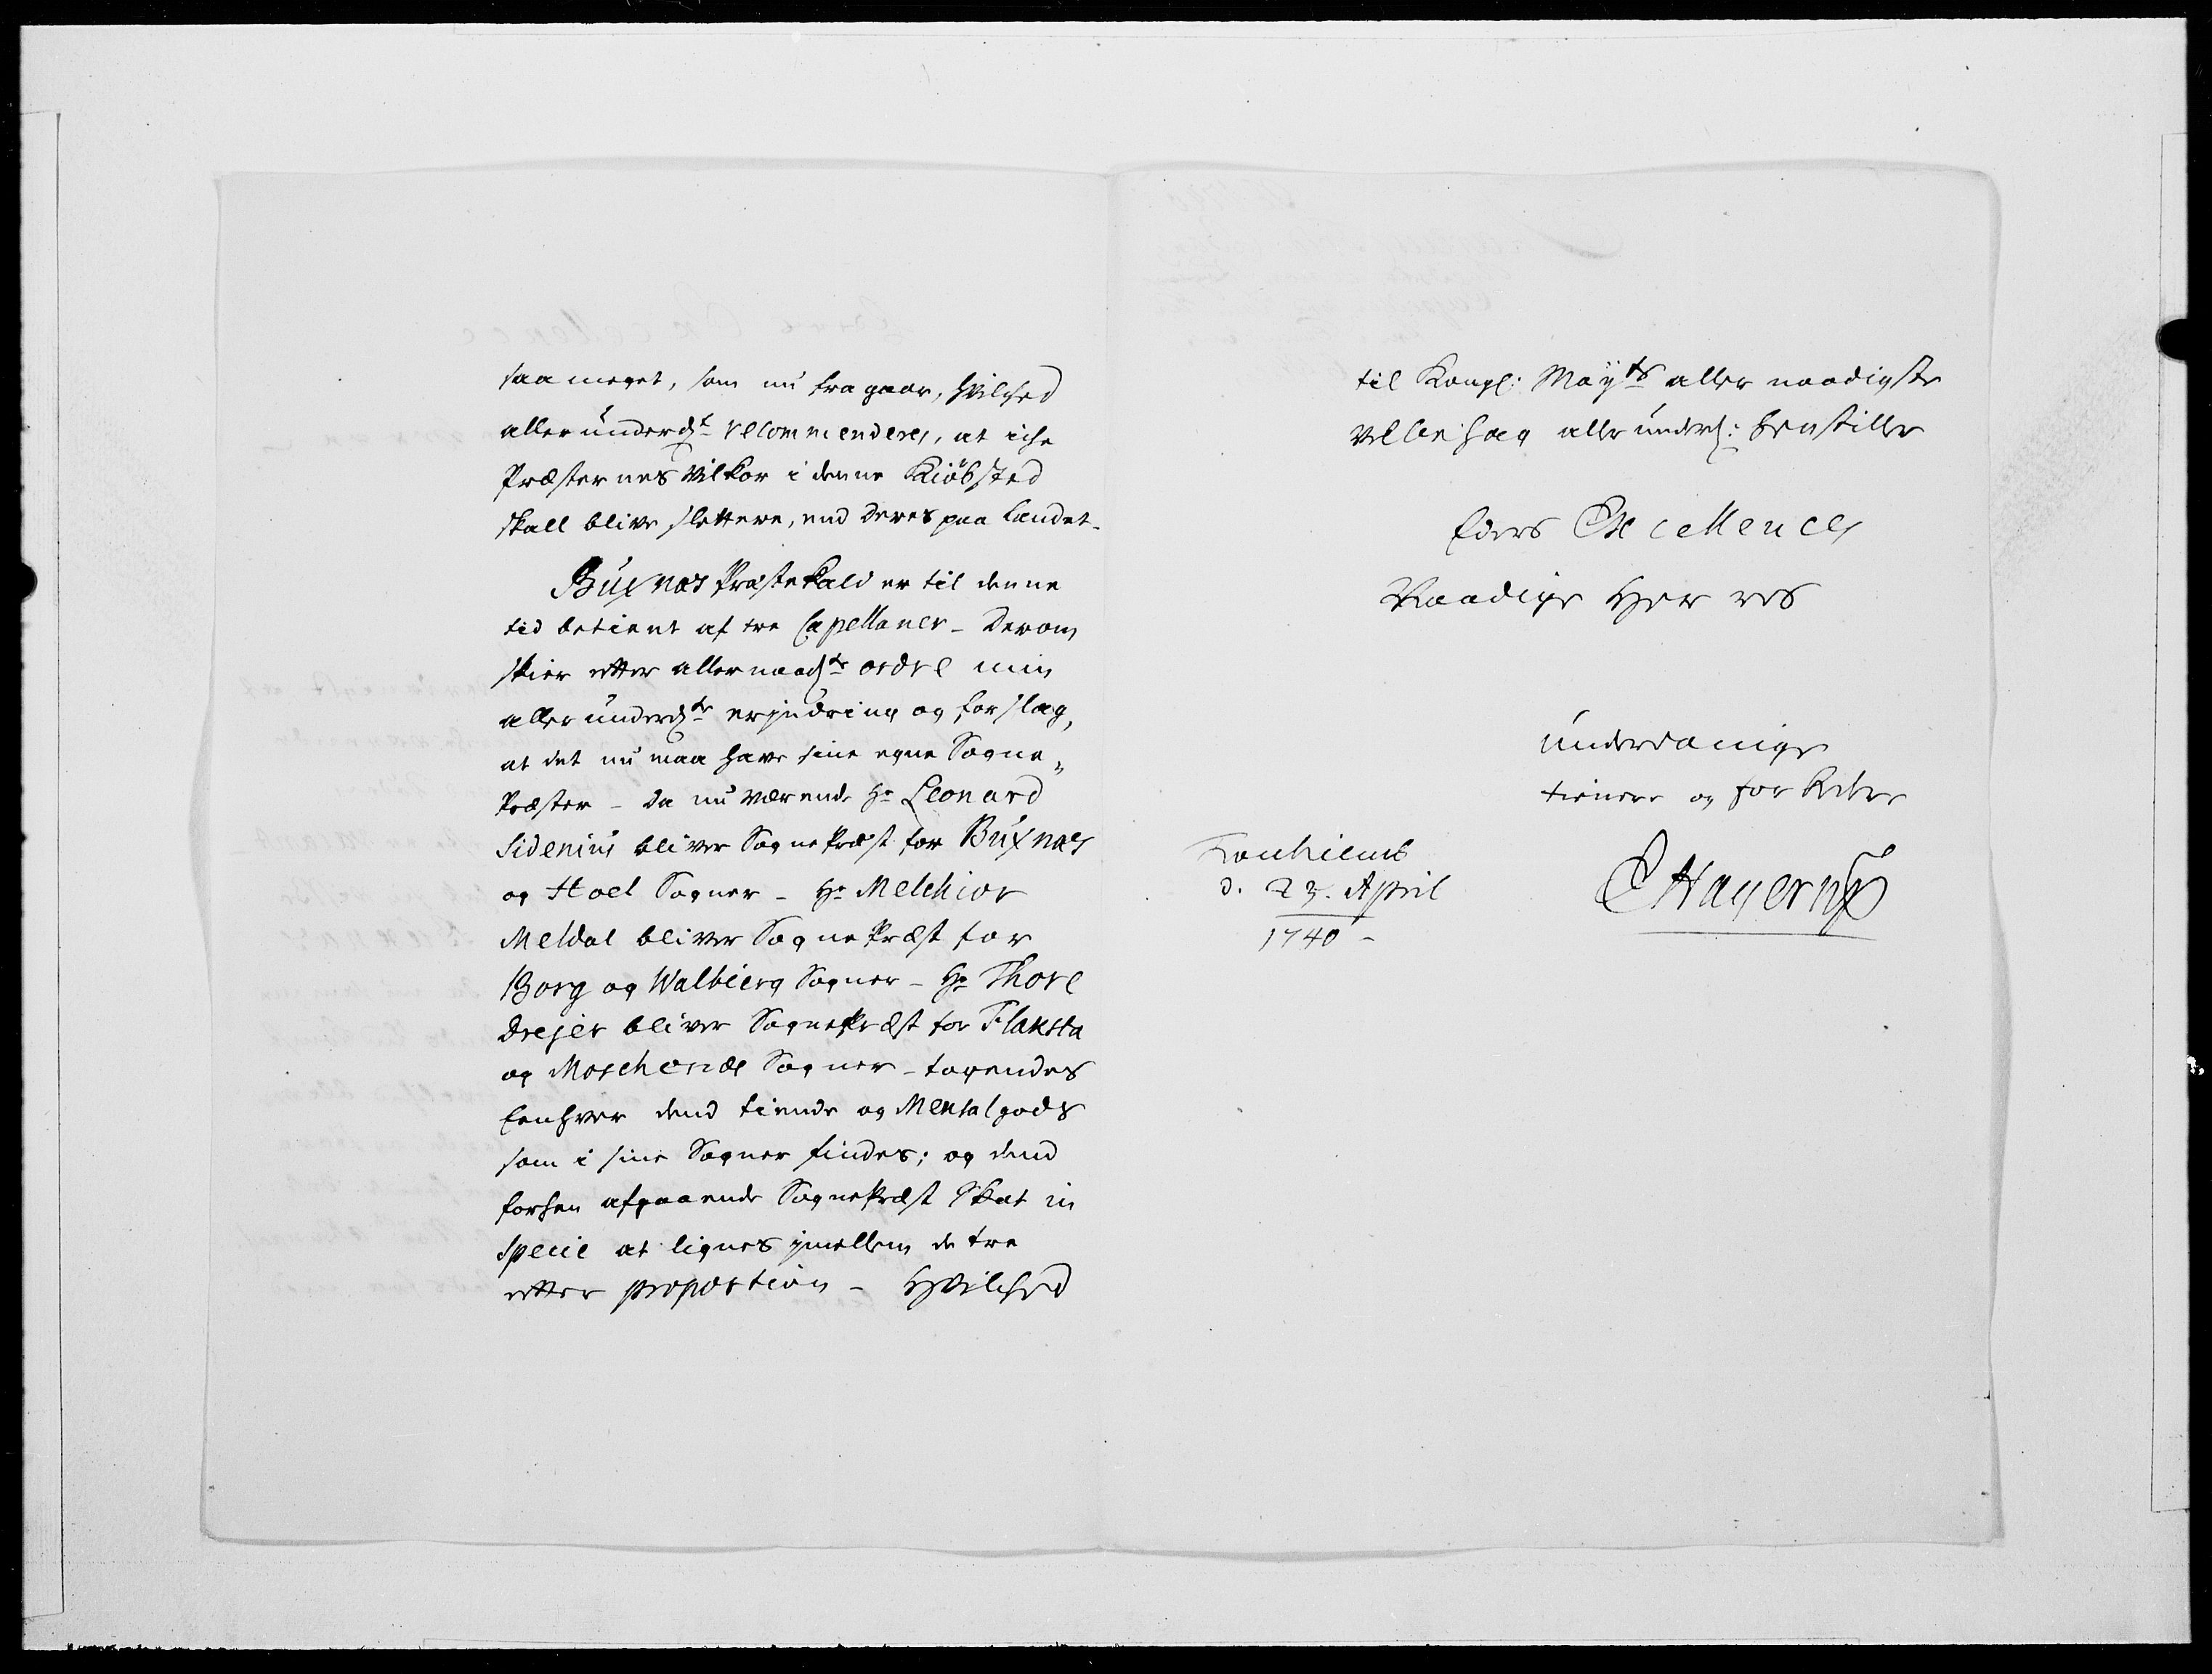 saa meget, som nu fra gaar, hvilched
aller underd:t recommenderes, at iche
Præsternes vilkor i denne Kiöbsted
skall blive slettere, end deres paa Landet.
Buxnæs Præstekald er til denne
tid betient af tre Capellaner - Derom
skier etter allernaad:te ordre min
aller underd:te erindring og forslag,
at det nu maa have sine egne Sogne„
Præster - Da nu værende Hr Leonard
Sidenius bliver Sognepræst for Buxnæs
og Hoel Sogner - Hr Melchior
Meldal bliver Sognepræst for
Borg og Walbierg Sogner - Hr Thore
Drejer bliver Sognepræst for Flaksta
og Moschenæs Sogner - tagendes
Eenhver dend tiende og Mensal gods
som i sine Sogner findes; og dend
forhen afgaaende Sognepræst Skat in
Specie at lignes imellem de tre
etter proportion - Hvilched
til Kongl: May:ts aller naadigste
Velbehag allerund: henstiller
Eders Excellences
Naadige Herres
underdanige
tienere og forbeder
Tronhiem
d. 23. April
1740 -
EHagerup